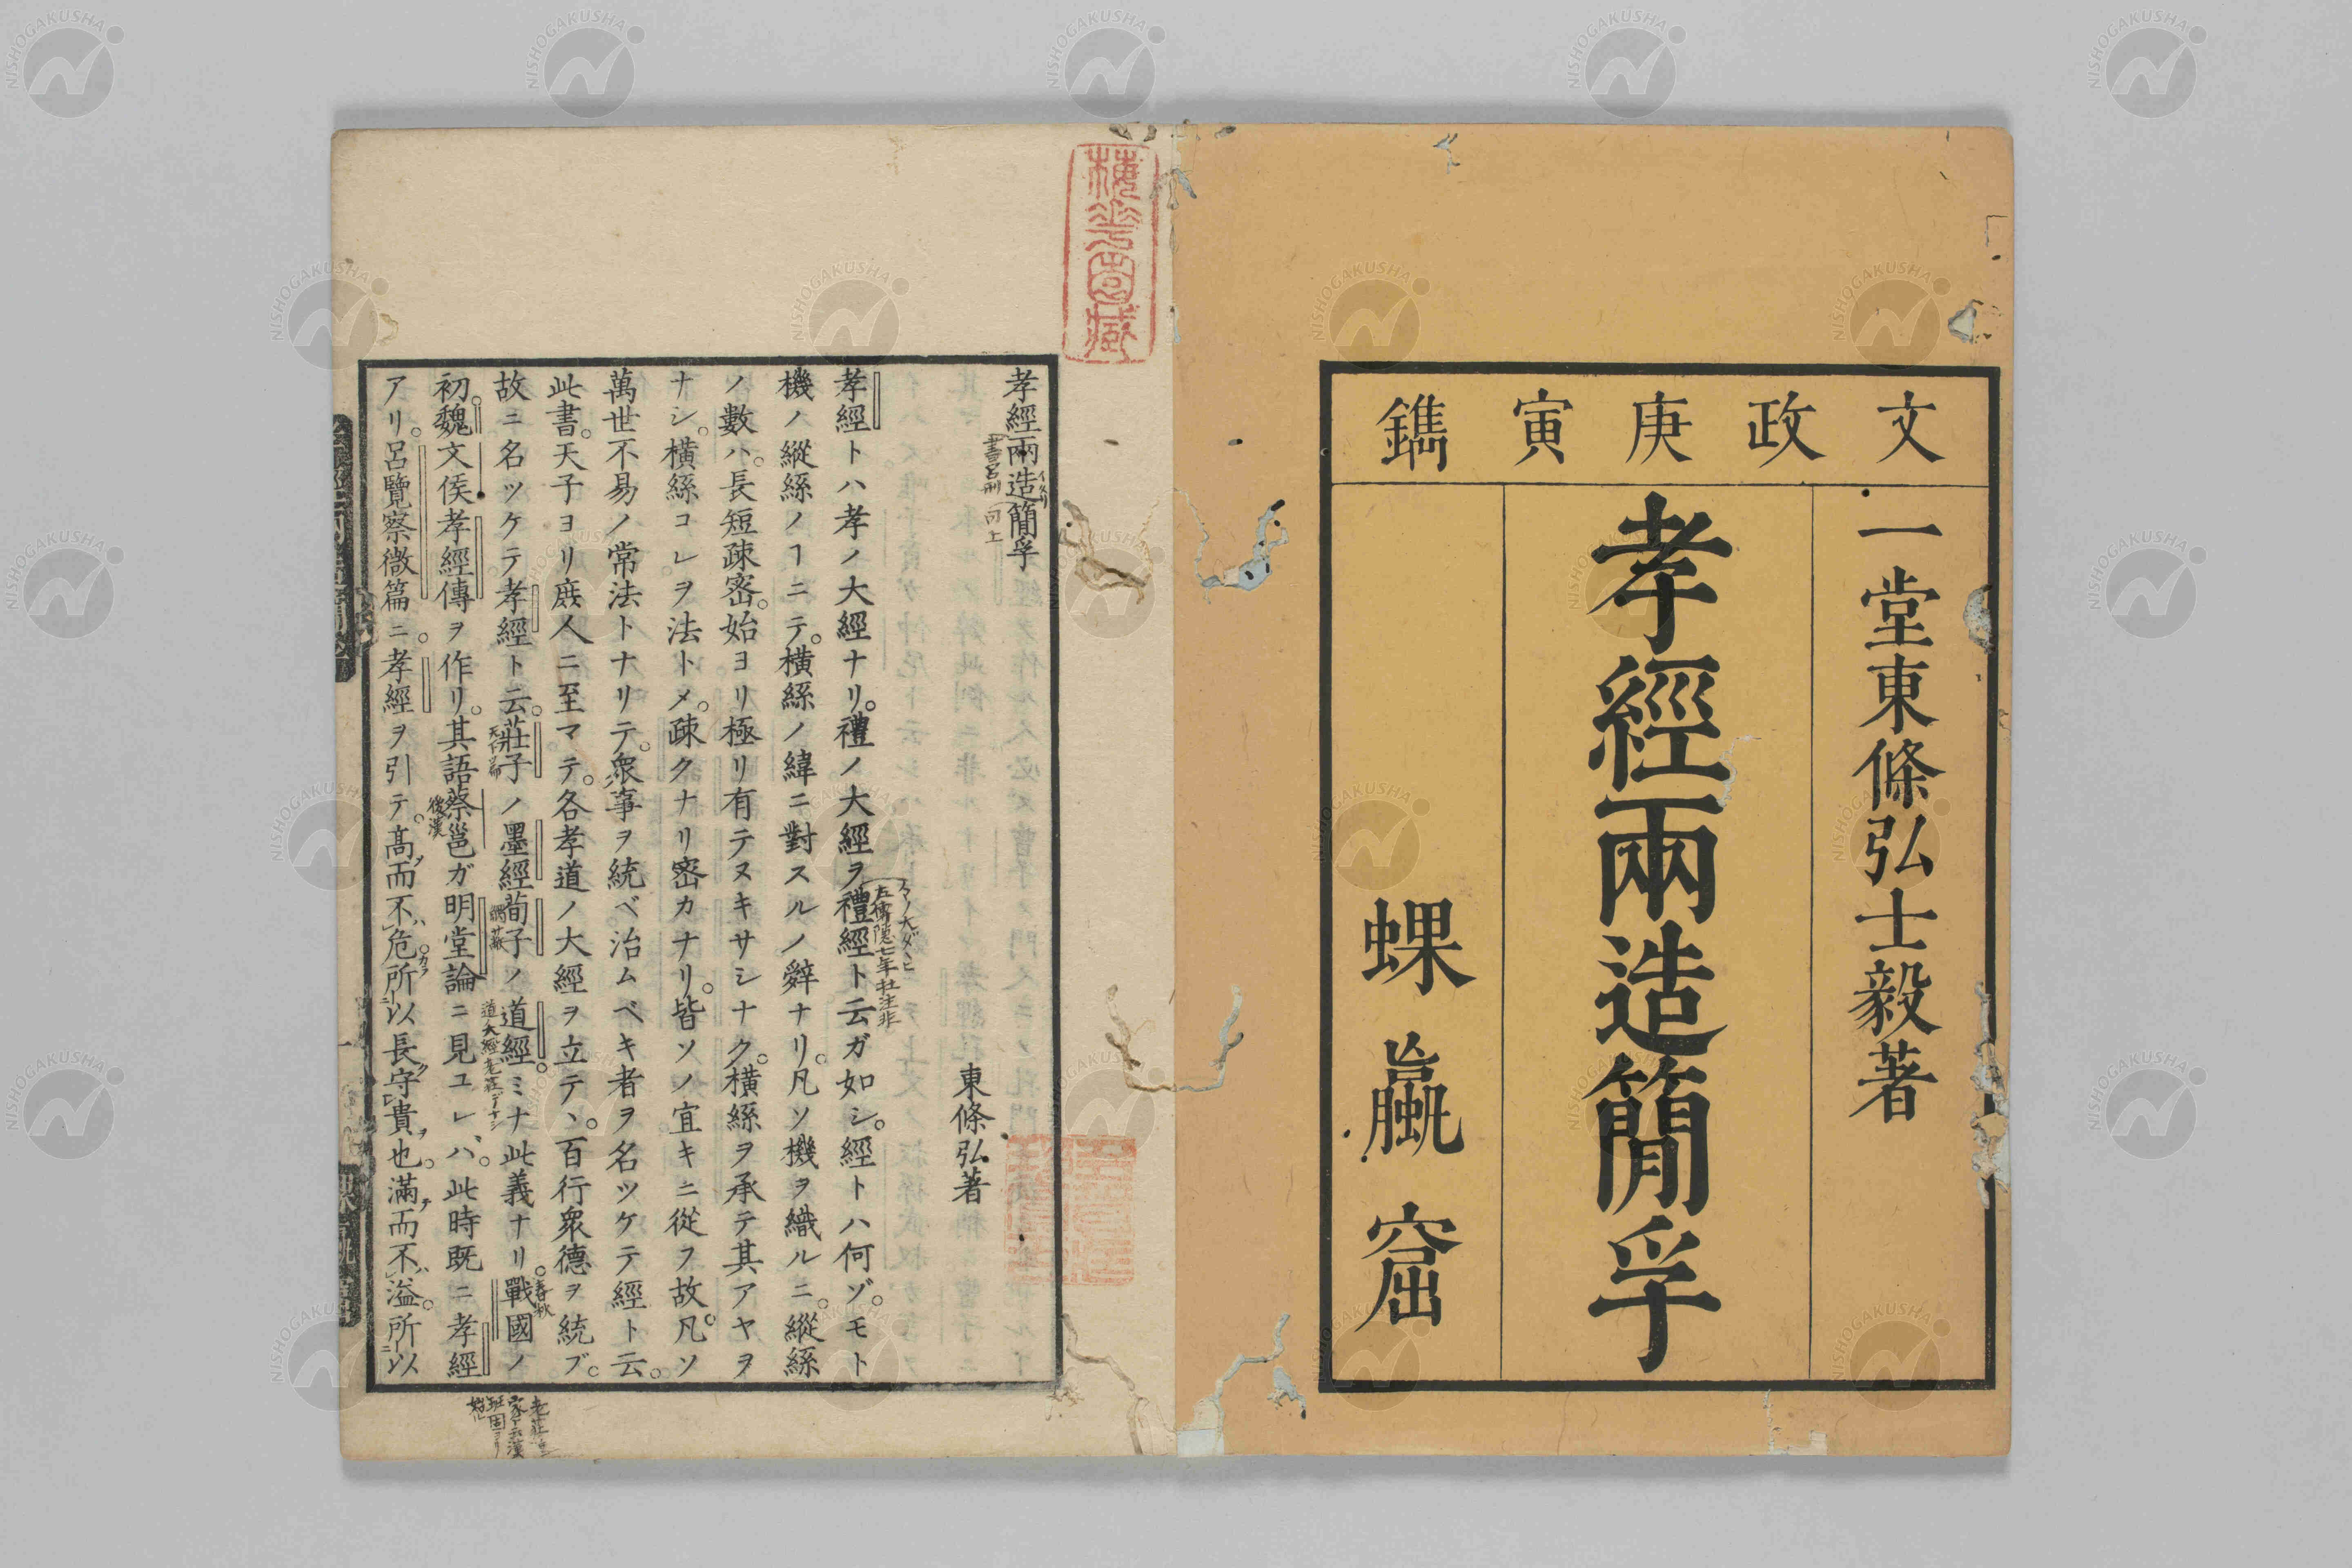 文政庚寅鐫
一堂東條弘士毅著
孝經兩造簡孚
蜾蠃窟
孝經兩造簡孚
書呂刑
同上
東條弘著
孝經トハ孝ノ大經ナリ。禮ノ大經ヲ禮經ト云ガ如シ。經トハ何ゾ。モト
左傳隱七年杜注非
機ノ縱絲ノヿニテ。橫絲ノ緯ニ對スルノ辭ナリ。凡ソ機ヲ織ルニ。縱絲
ノ數ハ。長短疎密。始ヨリ極リ有テヌキサシナク。橫絲ヲ承テ其アヤヲ
ナシ。橫絲コレヲ法トメ。疎クナリ密カナリ。皆ソノ宜キニ從フ故。凡ソ
萬世不易ノ常法トナリテ。衆事ヲ統ベ治ムベキ者ヲ名ツケテ經ト云。
此書。天子ヨリ庶人ニ至マテ。各孝道ノ大經ヲ立テヽ。百行衆德ヲ統ブ。
故ニ名ツケテ孝經ト云。莊子ノ墨經荀子ノ道經。ミナ此義ナリ。戰國ノ
天下篇
解蔽
春秋
初。魏文侯孝經傳ヲ作リ。其語蔡邕ガ明堂論ニ見ユレハ。此時既ニ孝經
後漢
アリ。呂覽察微篇ニ。孝經ヲ引テ。高而不危。所以長守貴也。滿而不溢。所以
NISHOGAKUSHA